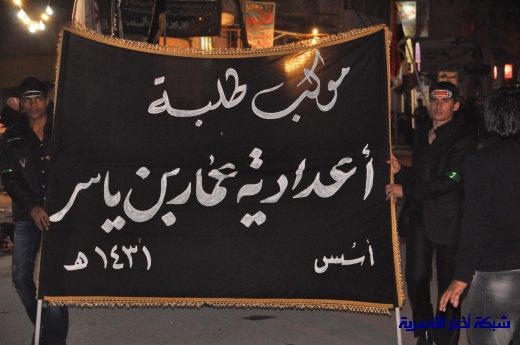 موكب طلبة
أعدادية عمار بن ياسر
أسس ١٤٣١ هـ
شبكة أخبار الناصرية